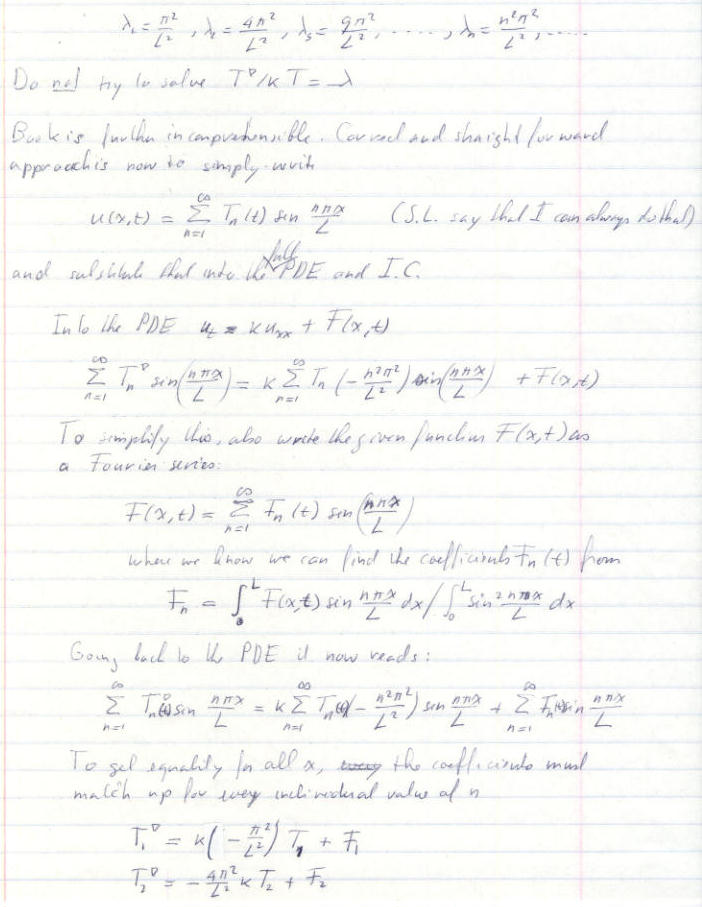 λ₁ = π²/L², λ₂ = 4π²/L², λ₃ = 9π²/L², ......, λₙ = n²π²/L², ......
Do not try to solve T'/κT = -λ
Book is further incomprehensible. Correct and straight forward
approach is now to simply write
u(x,t) = ∑_{n=1}^{∞} Tₙ(t) sin nπx/L (S.L. say that I can always do that)
and substitute that into the full PDE and I.C.
Into the PDE uₜ = κuₓₓ + F(x,t)
∑_{n=1}^{∞} Tₙ' sin(nπx/L) = κ ∑_{n=1}^{∞} Tₙ (-n²π²/L²) sin(nπx/L) + F(x,t)
To simplify this, also write the given function F(x,t) as
a Fourier series:
F(x,t) = ∑_{n=1}^{∞} Fₙ(t) sin(nπx/L)
where we know we can find the coefficients Fₙ(t) from
Fₙ = ∫₀ᴸ F(x,t) sin nπx/L dx / ∫₀ᴸ sin² nπx/L dx
Going back to the PDE it now reads:
∑_{n=1}^{∞} Tₙ'(t) sin nπx/L = κ ∑_{n=1}^{∞} Tₙ(t)(-n²π²/L²) sin nπx/L + ∑_{n=1}^{∞} Fₙ(t) sin nπx/L
To get equality for all x, the coefficients must
match up for every individual value of n
T₁' = κ(-π²/L²) T₁ + F₁
T₂' = -4π²/L² κ T₂ + F₂